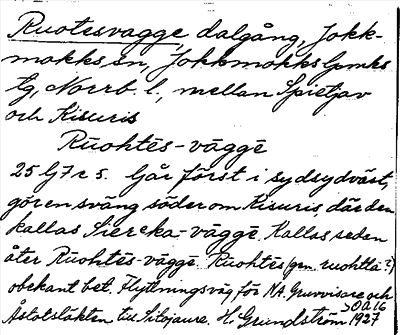 Ruotesvagge, dalgång, Jokk-
mokks sn, Jokkmokks lpmks
tg, Norrb. l., mellan Spietjav
och Kisuris
Rūohtēs-vāggē
25 G 7 c 5. Går först i sydsydväst,
gör en sväng söder om Kisuris, där den
kallas Siereka-vāggē. Kallas sedan
åter Rūohtēs-vāggē. Rūohtēs (gen. ruohtta?)
obekant bet. Flyttningsväg för NA. Gruvvisare och
Åstotsläkten till Sitojaure. H. Grundström 1937
OA 16